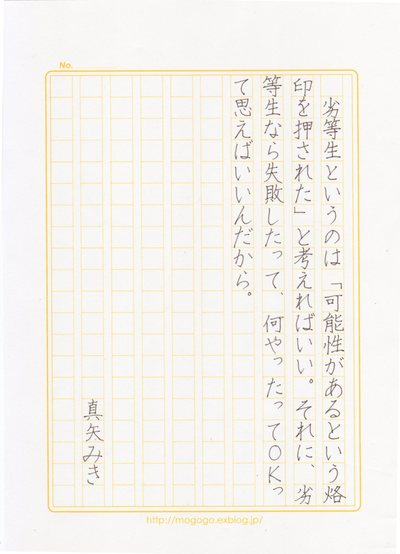 No.
劣等生というのは「可能性があるという烙
印を押された」と考えればいい。それに、劣
等生なら失敗したって、何やったってOKっ
て思えばいいんだから。
真矢みき
http://mogogo.exblog.jp/